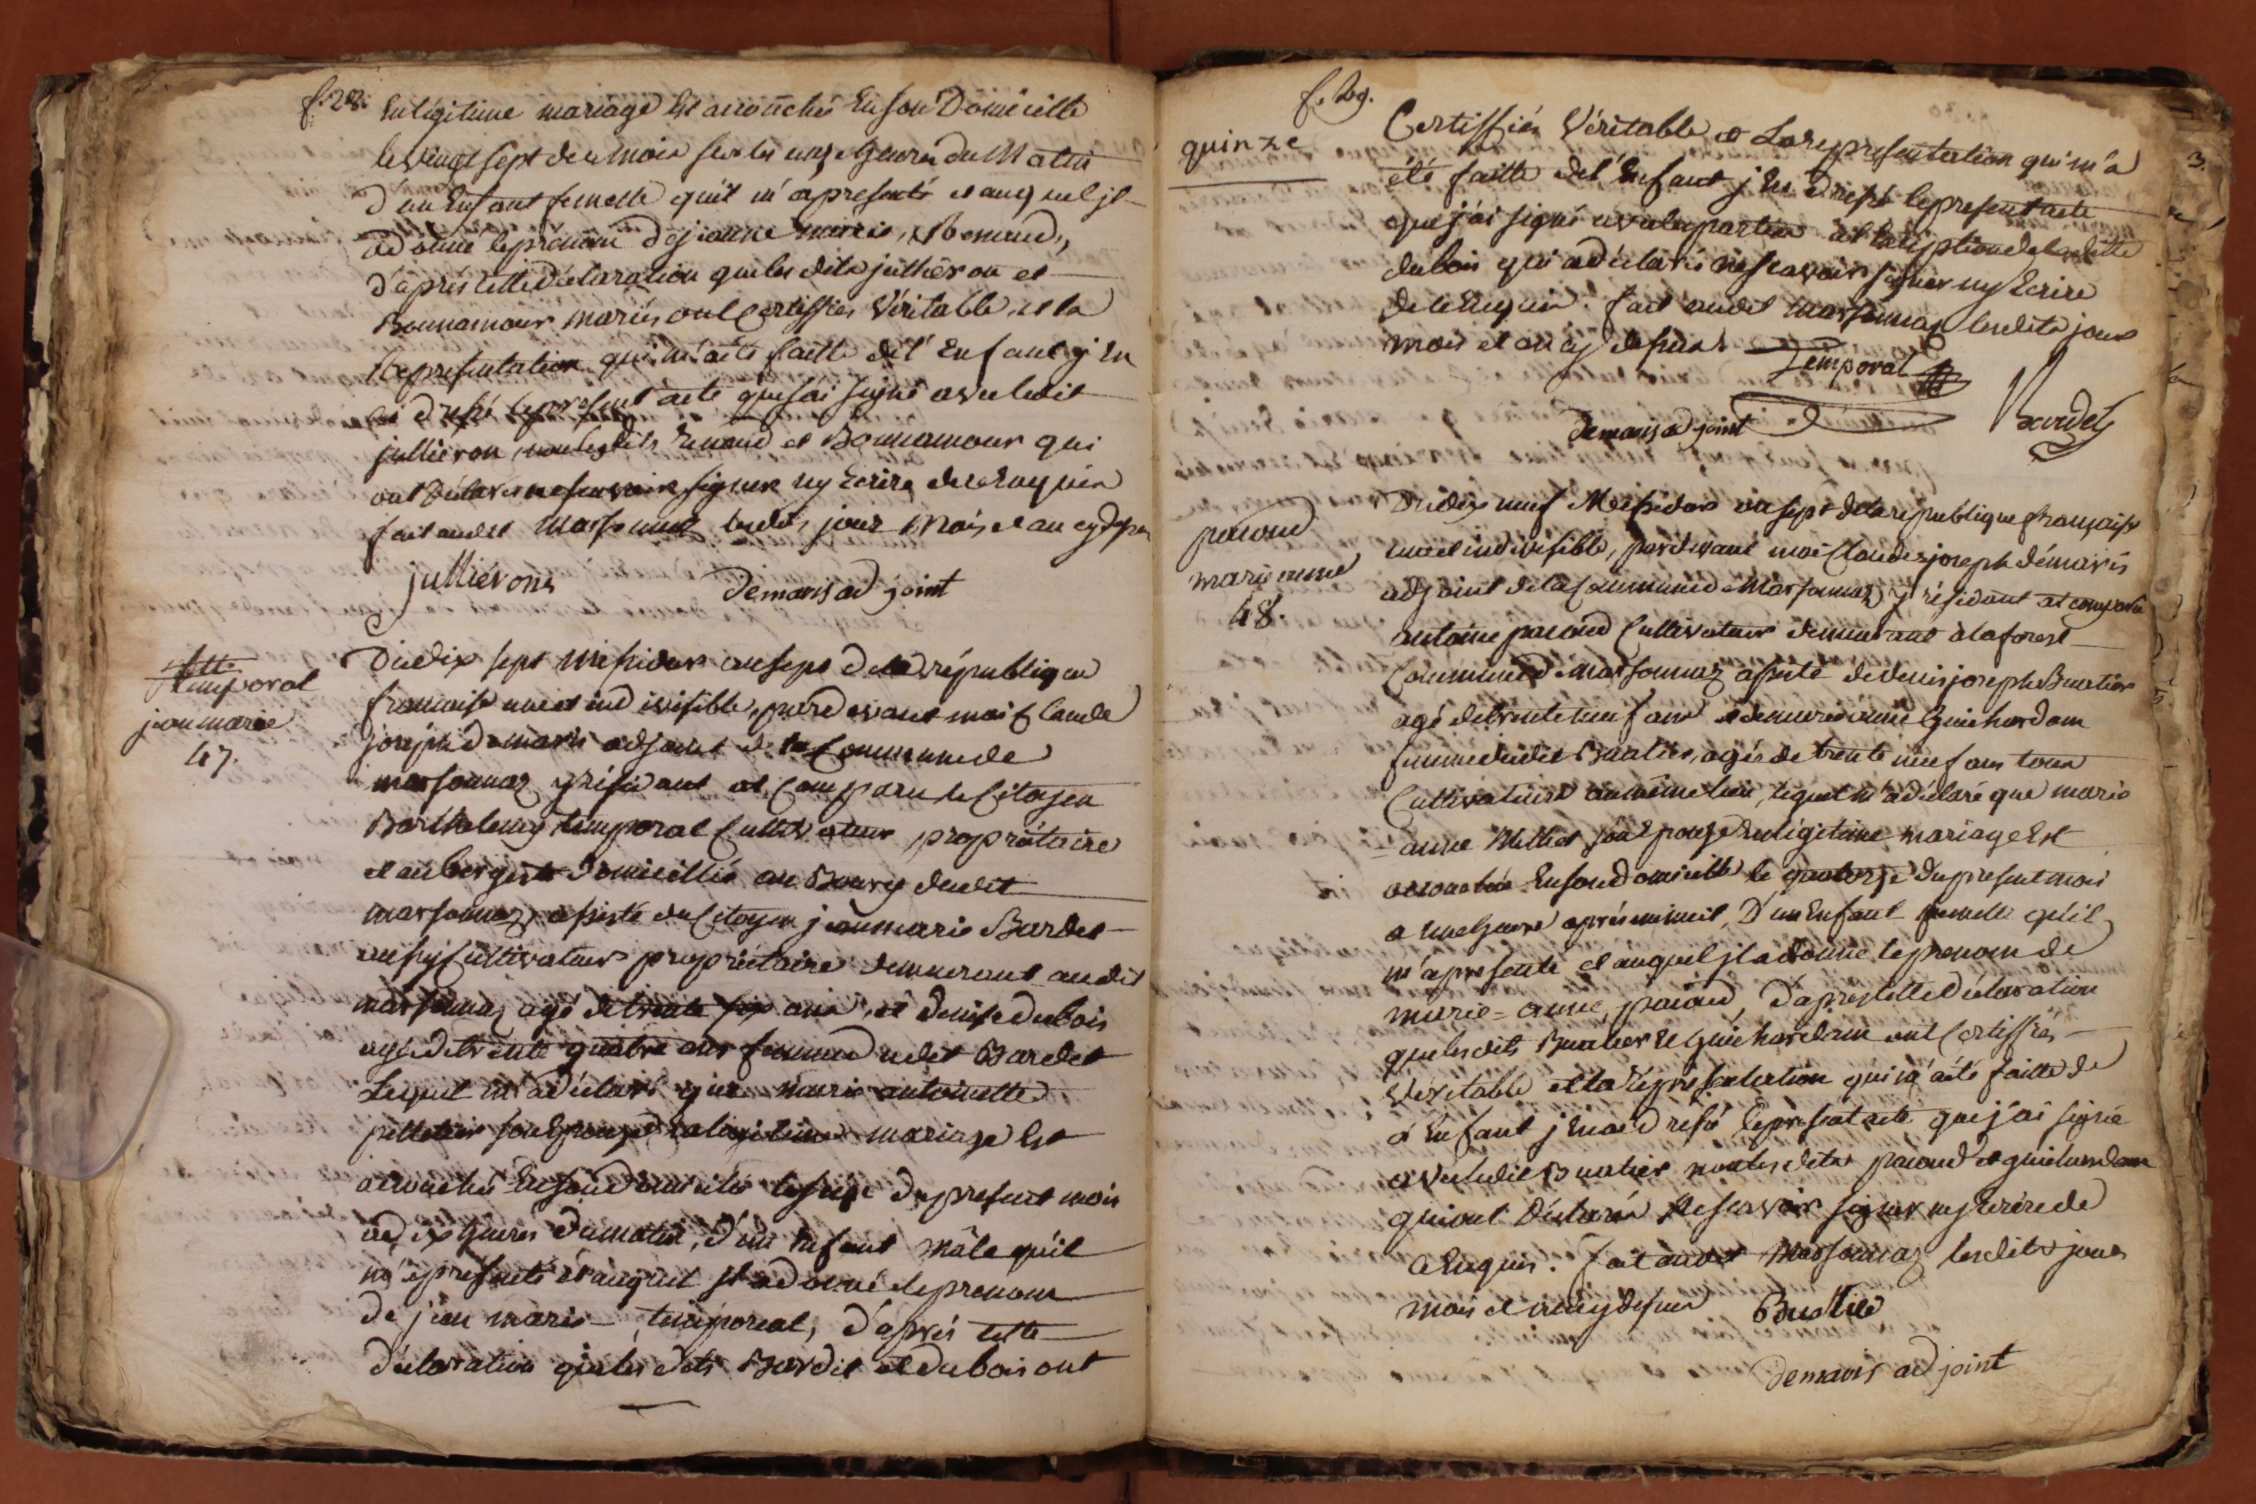 f. 28.
En légitime mariage Est accouchée En son Domicille
le vingt sept de ce mois sur les onze heures du Matin
D'un Enfant femelle qu'il m'a presenté et auquel jl
a donné le prénom de jeanne marie, Renaud,
d'aprés cette déclaration que les dits jullieron et
Bonnamour mariés ont Certiffiés Véritable, et la
Representation qui m'a été faitte de l'Enfant j'en
ai dressé le present acte que j'ai signé avec ledit
jullieron, non lesdits Renaud et Bonnamour qui
ont Déclarés ne scavoir signer ny Ecrire de ce Enquis
fait audit Marsonnaz lesdits jour Mois et an cy dessus
jullierons demaris adjoint
temporal
jean marie
47.
Du dix sept Messidor an sept de la république
francaise une et indivisible, pardevant moi Claude
joseph demaris adjoint de la Commune de
marsonnaz y résidant at Comparu le Citoyen
Barthelemy temporal Cultivateur propriétaire
et aubergiste domicillié au Bourg dudit
marsonnaz, assisté du Citoyen jeanmarie Bardet
aussi Cultivateur propriétaire demeurant audit
marsonnaz agé de trente six ans, et Denise dubois
agée de trente quatre ans femme dudit Bardet
Lequel m'a déclaré que marie antoinette
pelletier son Epouze En légitime mariage Est
accouchée En son domicile le seize du present mois
a dix heures du matin, d'un Enfant mâle qu'il
m'a presenté et auquel jl a donné le prenom
de jean marie temporal, d'aprés cette
déclaration que les dits Bardet et dubois ont
f. 29.
quinze
Certiffiés Véritable et La representation qui m'a
été faitte de l'Enfant j'En ai dressé le present acte
que j'ai signé avec les parties a l'exception de la ditte
dubois qui a déclaré ne scavoir signer ny Ecrire
de ce Enquise. fait audit Marsonnaz lesdits jour
mois et an cy dessus Temporal
demaris adjoint Bardet
3.
pacoud
marie anne
48.
Du dix neuf Messidor an sept de la république française
une et indivisible, pardevant moi Claude joseph démaris
adjoint de la Commune de Marsonnaz y résidant at comparu
antoine pacoud Cultivateur demeurant a la forest
Commune de Marsonnaz assisté de denis joseph Buatier
agé de trente neuf ans et de marie anne Guichardam
femme dudit Buatier, agée de trente neuf ans tous
Cultivateurs au même lieu, lequel m'a déclaré que marie
anne Millet son Epouze En légitime mariage Est
accouchée En son domicille le quatorze du present mois
a une heure aprés minuit, D'un Enfant femelle qu'il
m'a presenté et auquel jl a donné le prenom de
marie-anne, pacoud, d'apres cette Déclaration
que les dits Buatier et Guichardam ont Certiffiés
Véritable et la représentation qui m'a été faitte de
l'Enfant j'En ai dréssé le present acte que j'ai signé
avec ledit Buatier non les dits pacoud et guichardam
qui ont Déclarés Ne scavoir signer ny Ecrire de
ce Enquis. fait audit Marsonnaz lesdits jour
mois et an cy dessus Buatier
demaris adjoint